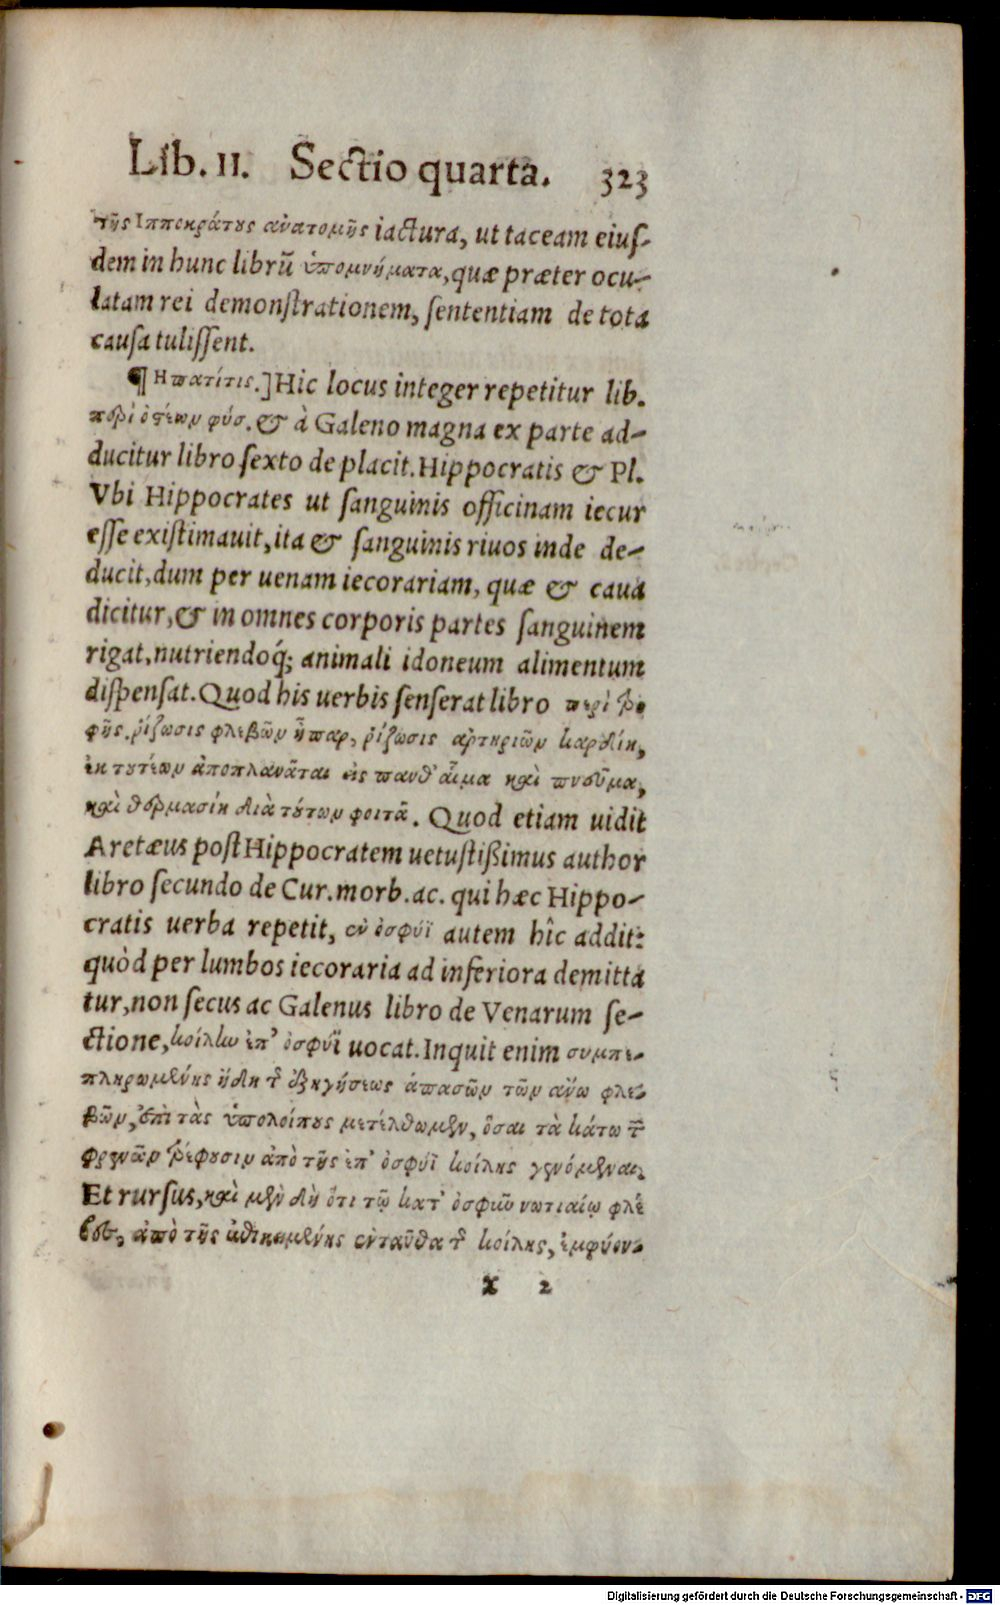 Lib. II. Sectio quarta. 323
τῆς Ιπποκράτους ἀνατομῆς iactura, ut taceam eiuſ-
dem in hunc librũ ὑπομνήματα, quæ præter ocu-
latam rei demonſtrationem, ſententiam de tota
cauſa tuliſſent.
¶ Ηπατίτις.] Hic locus integer repetitur lib.
περὶ ὀστέων φύσ. & à Galeno magna ex parte ad-
ducitur libro ſexto de placit. Hippocratis & Pl.
Vbi Hippocrates ut ſanguinis officinam iecur
eſſe exiſtimauit, ita & ſanguinis riuos inde de-
ducit, dum per uenam iecorariam, quæ & caua
dicitur, & in omnes corporis partes ſanguinem
rigat, nutriendoq́; animali idoneum alimentum
diſpenſat. Quod his uerbis ſenſerat libro περὶ τρο
φῆς. ῥίζωσις φλεβῶν ἧπαρ, ῥίζωσις ἀρτηριῶν καρδίη,
ἐκ τουτέων ἀποπλανᾶται εἰς πανθ' αἷμα καὶ πνεῦμα,
καὶ θερμασίη διὰ τούτων φοιτᾶ. Quod etiam uidit
Aretæus poſt Hippocratem uetuſtißimus author
libro ſecundo de Cur. morb. ac. qui hæc Hippo-
cratis uerba repetit, ἐν ὀσφύϊ autem hîc addit:
quòd per lumbos iecoraria ad inferiora demitta
tur, non ſecus ac Galenus libro de Venarum ſe-
ctione, κοίλην ἐπ' ὀσφύϊ uocat. Inquit enim συμπε-
πληρωμένης ἤδη τῆς ἐξηγήσεως ἁπασῶν τῶν ἄνω φλε-
βῶν, ἐπὶ τὰς ὑπολοίπους μετέλθωμεν, ὅσαι τὰ κάτω τῶν
φρενῶν τρέφουσιν ἀπὸ τῆς ἐπ' ὀσφύϊ κοίλης γενόμεναι.
Et rurſus, καὶ μὲν δὴ ὅτι τῷ κατ' ὀσφῦν νωτιαίῳ φλέ
βες, ἀπὸ τῆς ἐνταῦθα τῆς κοίλης, ἐμφύον-
x 2
Digitalisierung gefördert durch die Deutsche Forschungsgemeinschaft - DFG